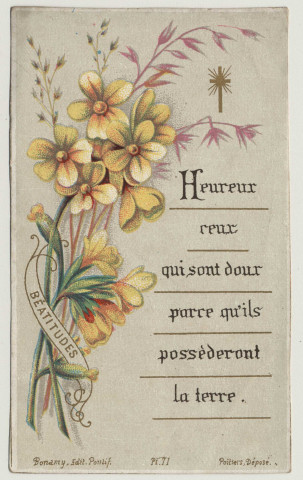 Heureux
ceux
qui sont doux
parce qu'ils
possèderont
la terre.
BÉATITUDES
Bonamy, Edit. Pontif. Pl. 71 Poitiers, Déposé.